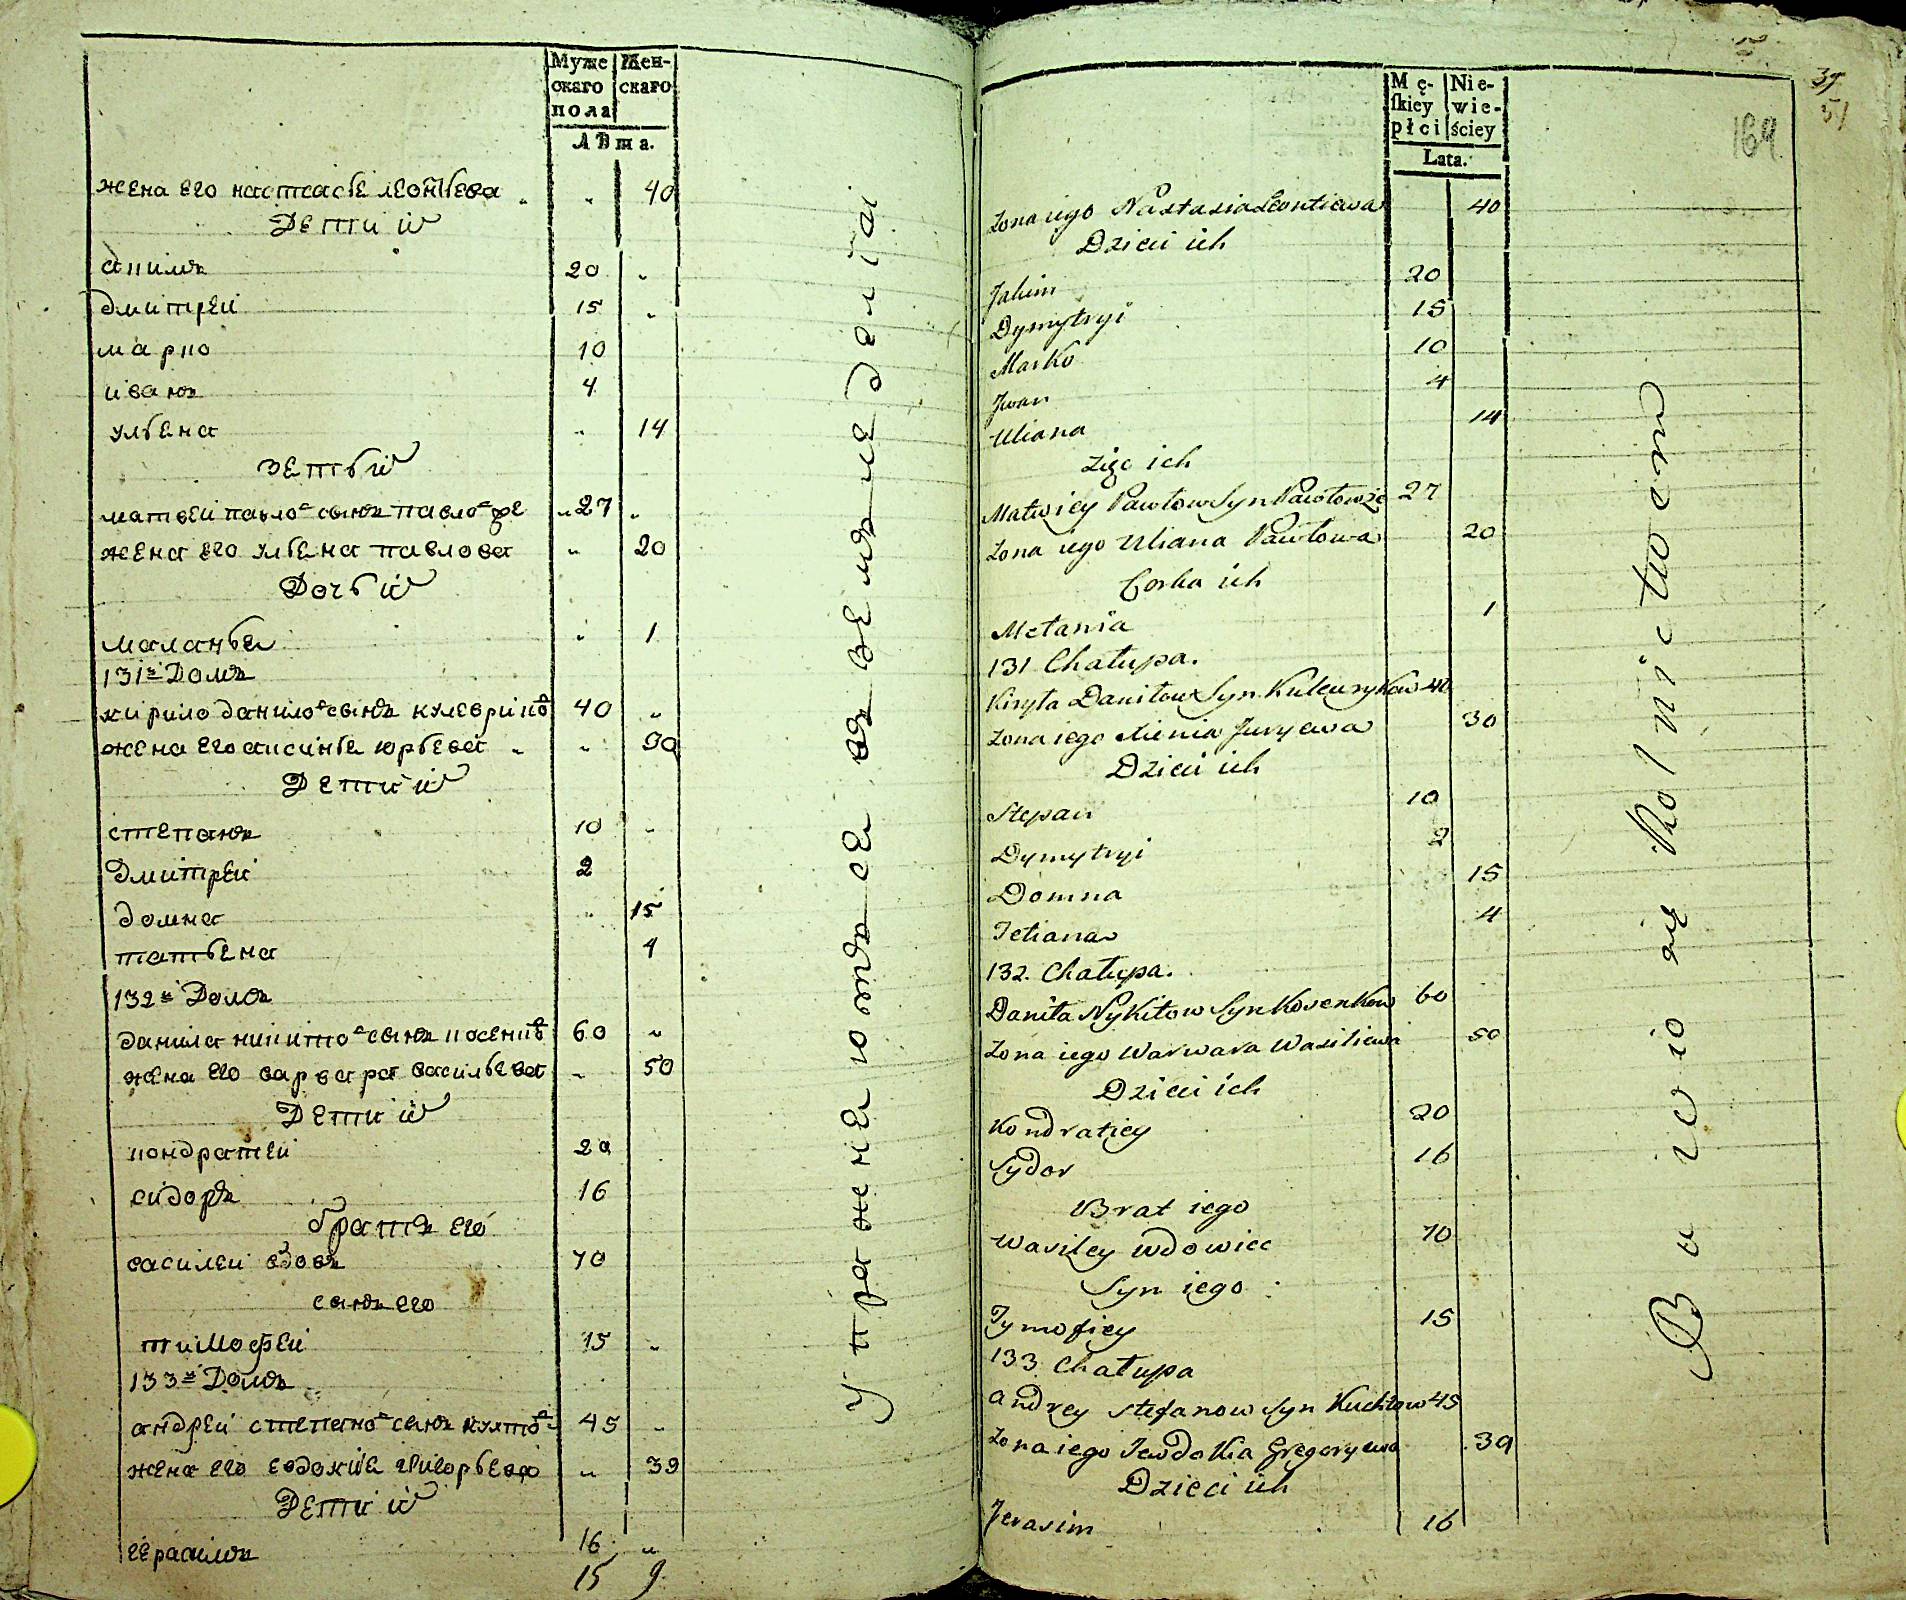 Муже Жен-
скаго скаго
пола
Лѣта.
жена его настасъе леонтьева „ „ 40
Дети и͠
акимъ 20 „
дмитреи 15 „
марко 10
иванъ 4
ульена „ 14
зеть и͠
матвеи павло͠ сынъ павло͠ же „ 27 „
жена его ульена павлова „ 20
Дочь и͠
маланье „ 1
131й Домъ
кирило данило͠ сынъ кулеврико͠ 40 „
жена его аксинье юрьева „ „ 30
Дети и͠
степанъ 10 „
Дмитреи 2
домна „ 15
татьена 4
132й Домъ
данила никито͠ сынъ косенко͠ 60 „
жена его варвара васильева „ 50
Дети и͠
кондратеи 20
сидоръ 16
братъ его
василеи вдовъ 70
сынъ его
тимофеи 15 „
133й Домъ
андреи степано͠ сынъ кухто͠ 45 „
жена его евдокие григорьева „ 39
Дети и͠
герасимъ 16 „
15 9
Упражнеютъ се въ земледелïи
Mę- Nie-
ſkiey wie-
płci ściey
Lata.
37
51
169
Zona iego Nastasia Leontiewa 40
Dzieci ich
Jakim 20
Dymytryi 15
Marko 10
Jwan 4
Uliana 14
Zięc ich
Matwiey Pawłow Syn Pawłow że 27
Zona iego Uliana Pawłowa 20
Corka ich
Mełania 1
131 Chałupa.
Kiryła Daniłow Syn Kulewrykow 40
Zona iego Xienia Juryewa 30
Dzieci ich
Stepan 10
Dymytryi 2
Domna 15
Tetiana 4
132. Chałupa.
Daniła Nykitow Syn Kosenkow 60
Zona iego Warwara Wasiliewa 50
Dzieci ich
Kondratiey 20
Sydor 16
Brat iego
Wasiley wdowiec 70
Syn iego
Tymofiey 15
133 Chałupa
Andrey Stefanow Syn Kuchtow 45
Zona iego Jewdokia Gregoryewa 39
Dzieci ich
Jerasim 16
Bawio się Rolnictwem